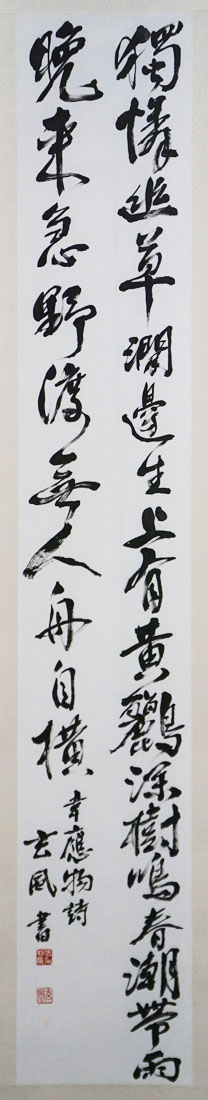 獨憐幽草澗邊生上有黃鸝深樹鳴春潮帶雨
晚來急野渡無人舟自橫
韋應物詩
玄風書